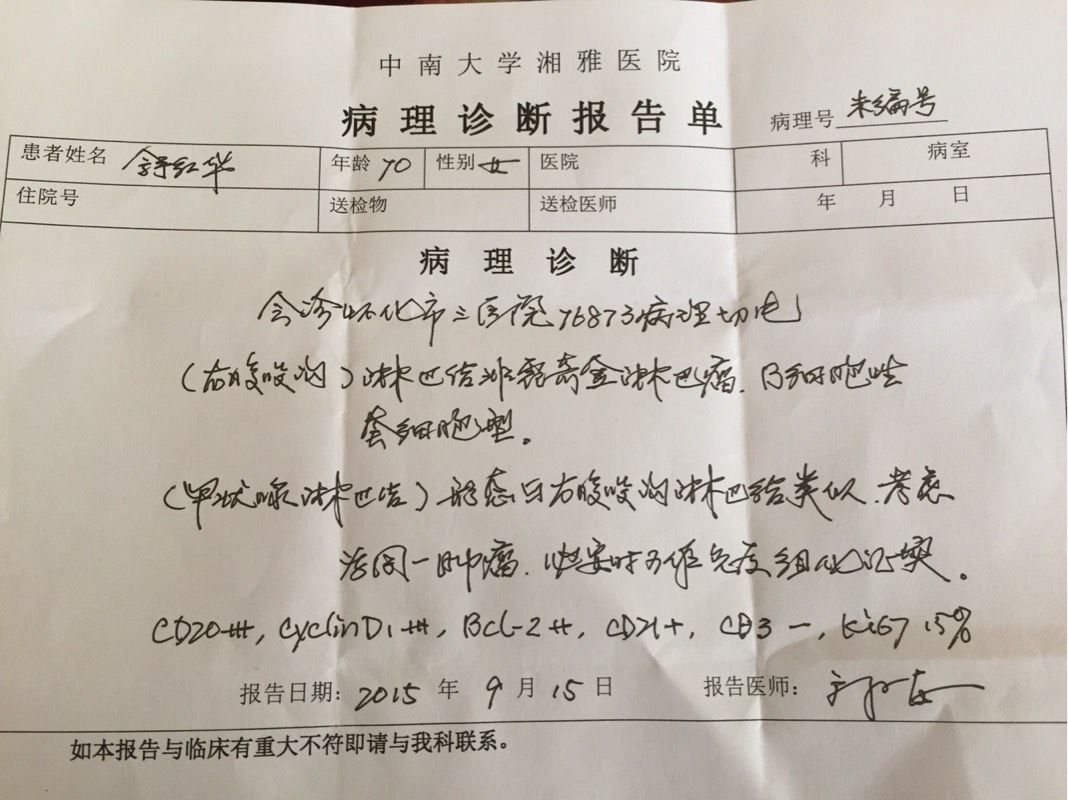 中南大学湘雅医院
病理诊断报告单
病理号 未编号
患者姓名 舒红华 年龄 70 性别 女 医院 科 病室
住院号 送检物 送检医师 年 月 日
病理诊断
会诊怀化市三医院76873病理切片
(右腹股沟)淋巴结非霍奇金淋巴瘤.B细胞性
套细胞型。
(甲状腺淋巴结)形态与右腹股沟淋巴结类似.考虑
为同一肿瘤.必要时可作免疫组化证实。
CD20+++, CyclinD1+++, Bcl-2++, CD21+, CD3-, Ki67 15%
报告日期: 2015 年 9 月 15 日 报告医师:
如本报告与临床有重大不符即请与我科联系。